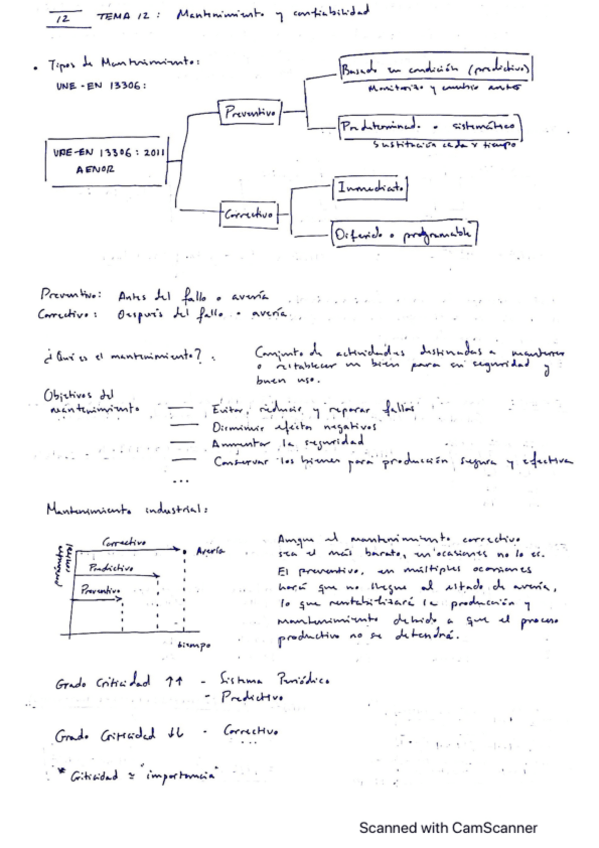 12 TEMA 12: Mantenimiento y confiabilidad
• Tipos de Mantenimiento:
UNE-EN 13306:
UNE-EN 13306:2011
AENOR
Preventivo
Basado en condición (predictivo)
Monitorizo y cambio antes
Predeterminado o sistemático
Sustitución cada x tiempo
Correctivo
Inmediato
Diferido o programable
Preventivo: Antes del fallo o avería
Correctivo: Después del fallo o avería.
¿Qué es el mantenimiento?: Conjunto de actividades destinadas a mantener
o restablecer un bien para su seguridad y
buen uso.
Objetivos del
mantenimiento
— Evitar, reducir y reparar fallos
— Disminuir efectos negativos
— Aumentar la seguridad
— Conservar los bienes para producción segura y efectiva
...
Mantenimiento industrial:
parámetro
control
Correctivo
Avería
Predictivo
Preventivo
tiempo
Aunque el mantenimiento correctivo
sea el más barato, en ocasiones no lo es.
El preventivo, en múltiples ocasiones
hará que no llegue al estado de avería,
lo que rentabilizará la producción y
mantenimiento debido a que el proceso
productivo no se detendrá.
Grado Criticidad ↑↑ - Sistema Periódico
- Predictivo
Grado Criticidad ↓↓ - Correctivo
...
* Criticidad ≈ "importancia"
Scanned with CamScanner